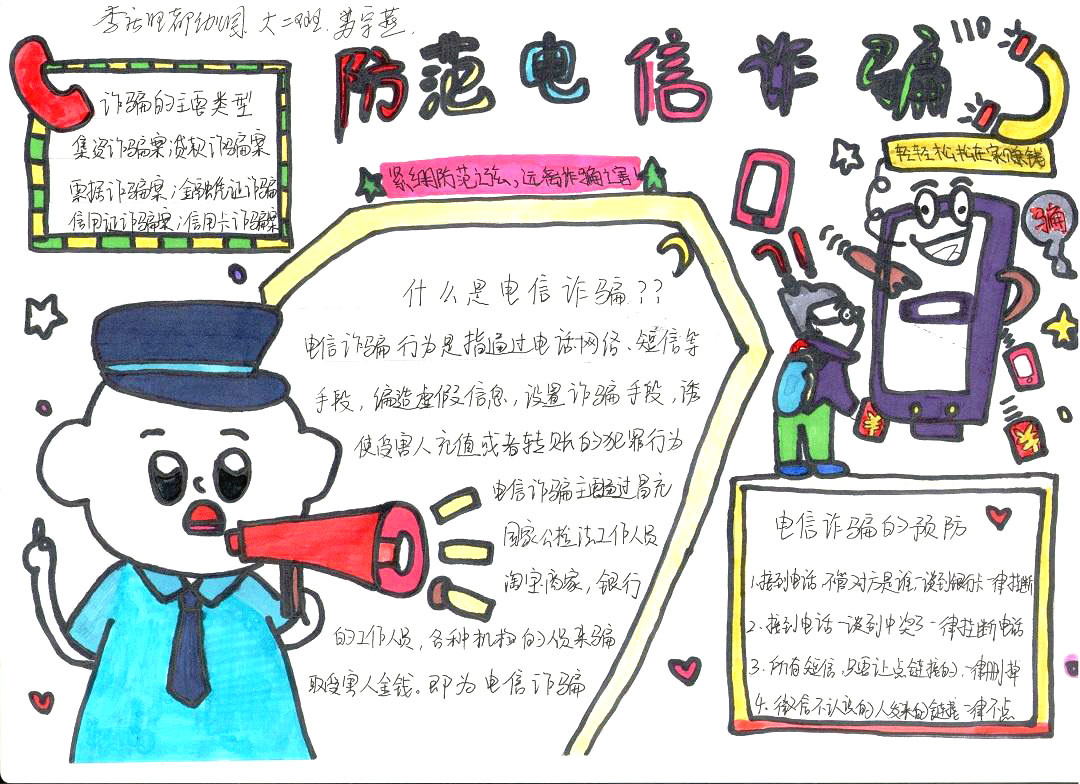 大二班
防范电信诈骗
110
诈骗的主要类型
集资诈骗案;贷款诈骗案
票据诈骗案;金融凭证诈骗
信用证诈骗案;信用卡诈骗案
紧绷防范之弦,远离诈骗之害
轻轻松松在家赚钱
骗
?!!
什么是电信诈骗??
电信诈骗行为是指通过电话网络、短信等
手段,编造虚假信息,设置诈骗手段,诱
使受害人充值或者转账的犯罪行为
电信诈骗主要通过冒充
国家公检法工作人员
淘宝商家,银行
的工作人员,各种机构的人员来骗
取受害人金钱。即为电信诈骗
¥
¥
电信诈骗的预防
1.接到电话,不管对方是谁,谈到银行卡一律挂断
2.接到电话一谈到中奖了一律挂断电话
3.所有短信,只要让点链接的,一律删掉
4.微信不认识的人发来的链接一律不点